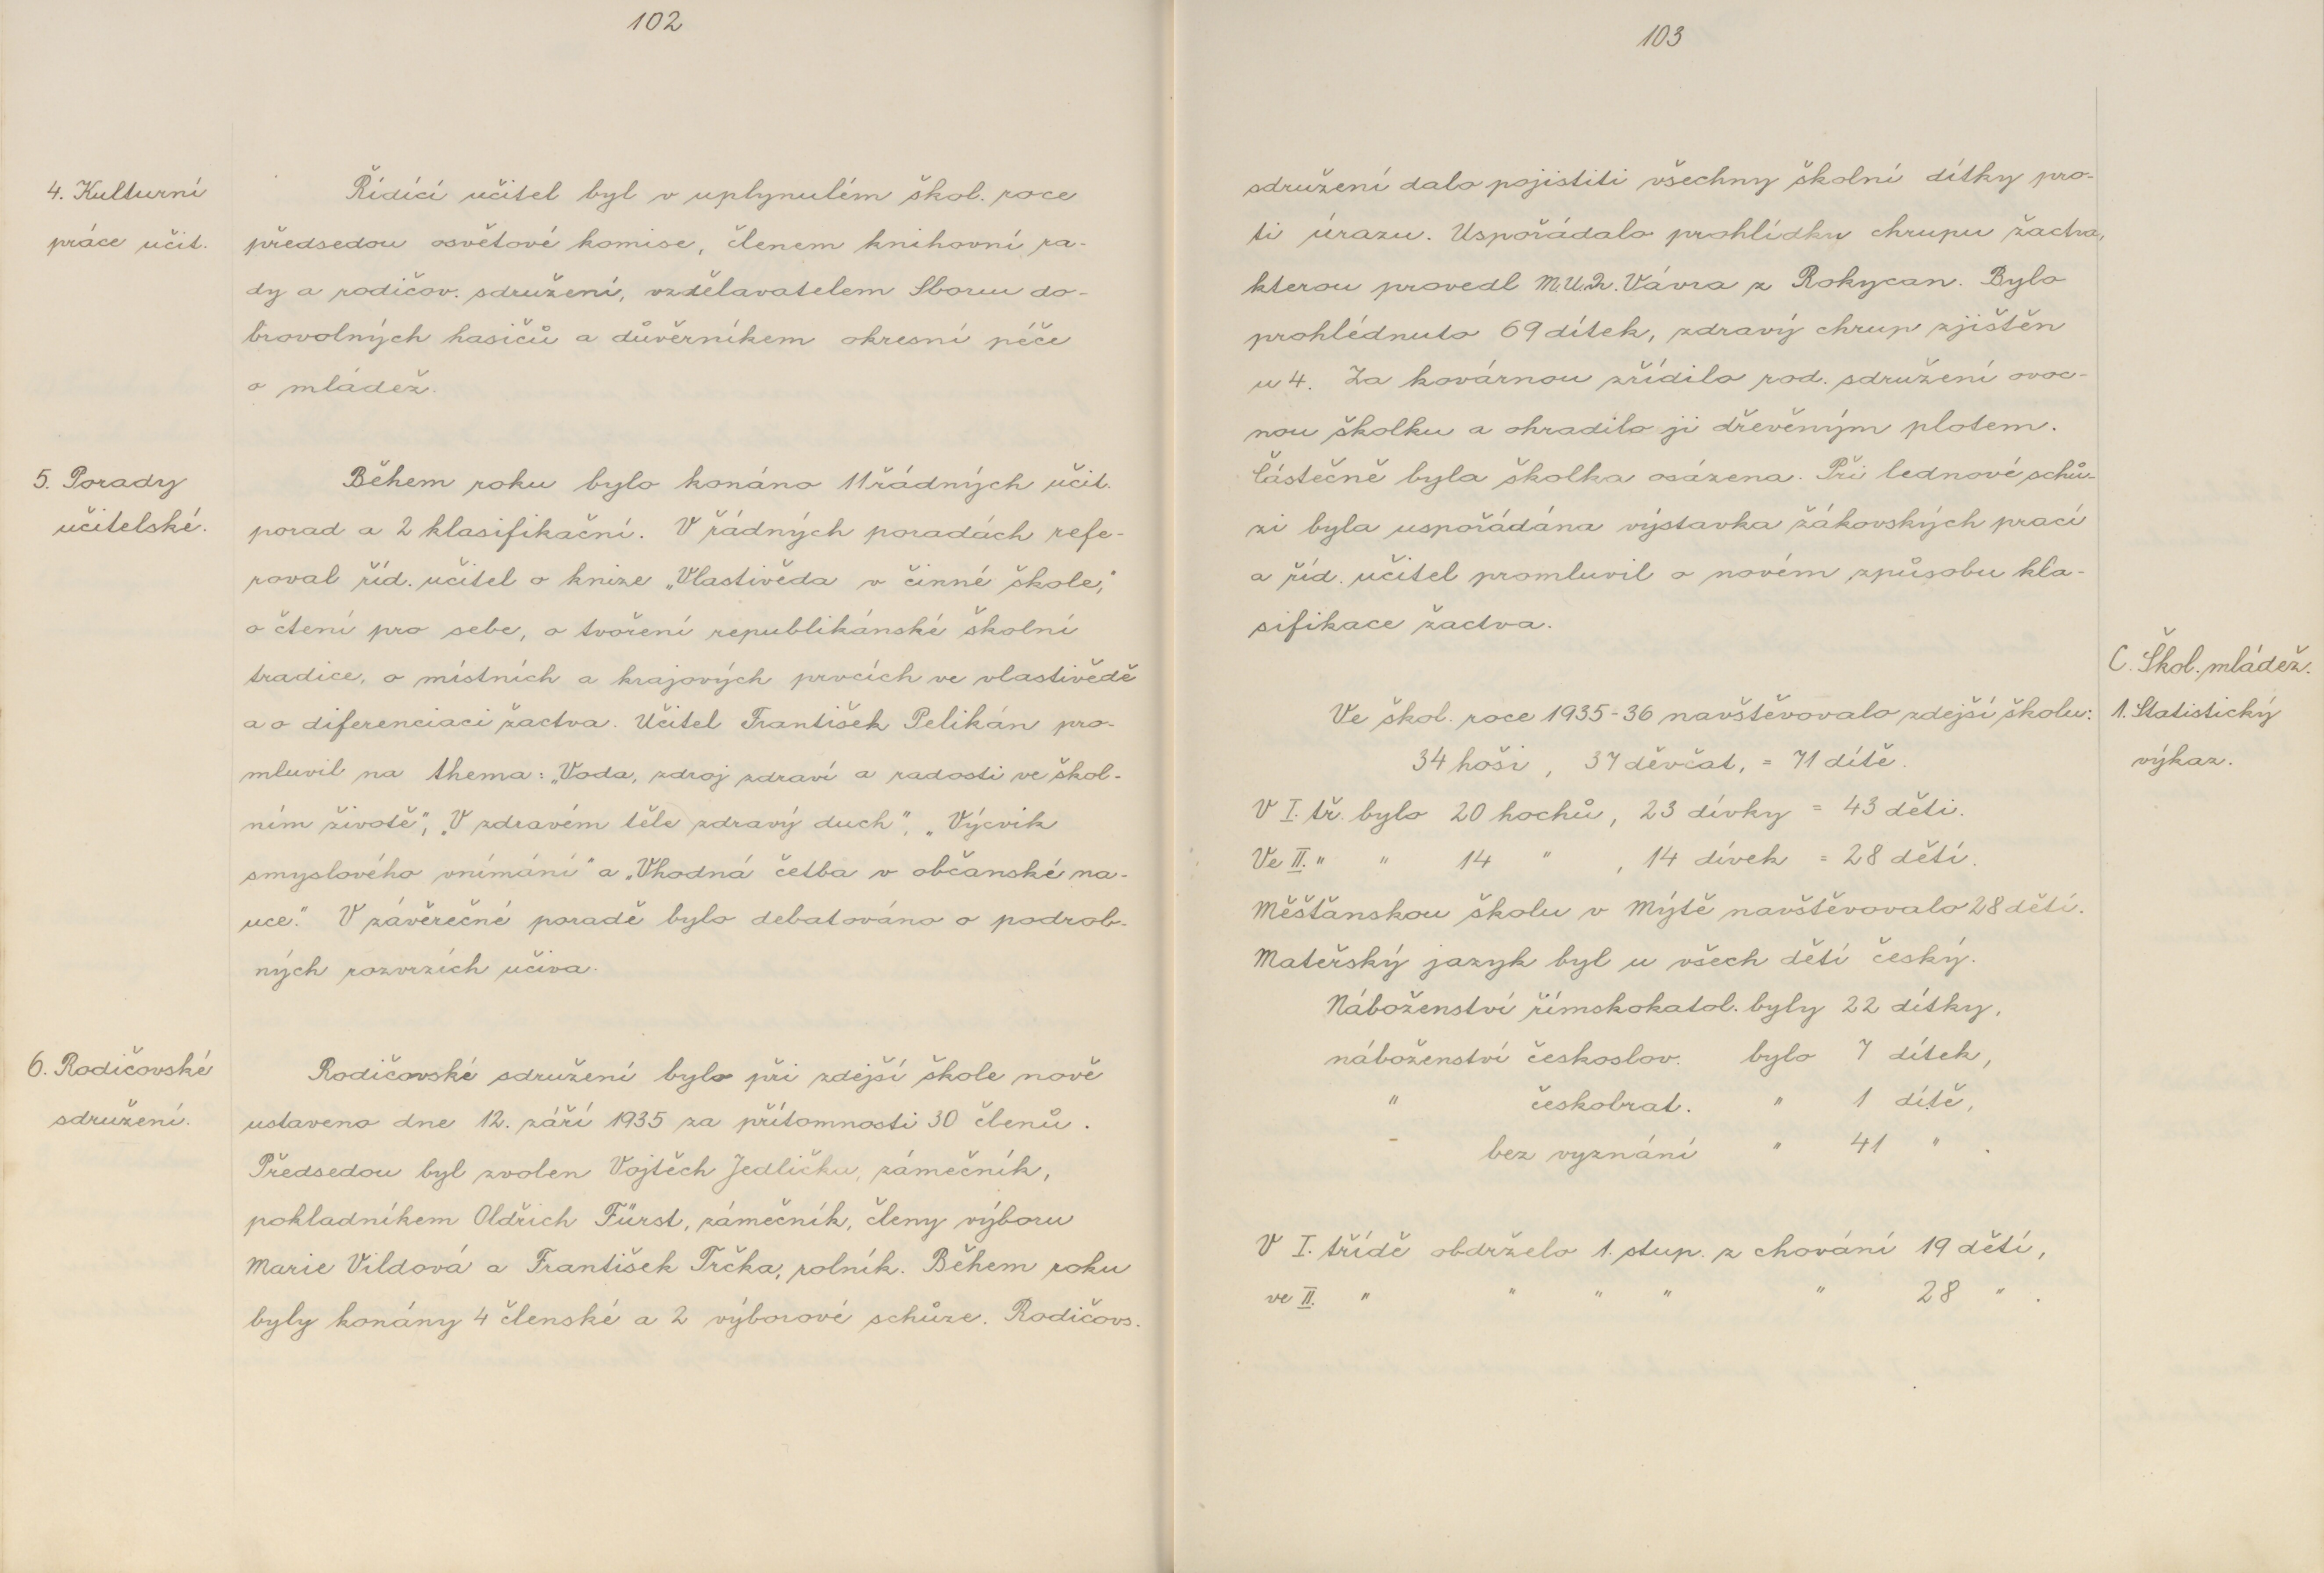 102
4. Kulturní
práce učit.
Řídící učitel byl v uplynulém škol. roce
předsedou osvětové komise, členem knihovní ra-
dy a rodičov. sdružení, vzdělavatelem Sboru do-
brovolných hasičů a důvěrníkem okresní péče
o mládež.
5. Porady
učitelské.
Během roku bylo konáno 11 řádných učit.
porad a 2 klasifikační. V řádných poradách refe-
roval říd. učitel o knize „Vlastivěda v činné škole,"
o čtení pro sebe, o tvoření republikánské školní
tradice, o místních a krajových prvcích ve vlastivědě
a o diferenciaci žactva. Učitel František Pelikán pro-
mluvil na thema: „Voda, zdroj zdraví a radosti ve škol-
ním životě", „V zdravém těle zdravý duch", „Výcvik
smyslového vnímání" a „Vhodná četba v občanské na-
uce." V závěrečné poradě bylo debatováno o podrob-
ných rozvrzích učiva.
6. Rodičovské
sdružení.
Rodičovské sdružení bylo při zdejší škole nově
ustaveno dne 12. září 1935 za přítomnosti 30 členů.
Předsedou byl zvolen Vojtěch Jedličku, zámečník,
pokladníkem Oldřich Fürst, zámečník, členy výboru
Marie Vildová a František Trčka, rolník. Během roku
byly konány 4 členské a 2 výborové schůze. Rodičovs.
103
sdružení dalo pojistiti všechny školní dítky pro-
ti úrazu. Uspořádalo prohlídku chrupu žactva,
kterou provedl M.U.Dr. Vávra z Rokycan. Bylo
prohlédnuto 69 dítek, zdravý chrup zjištěn
u 4. Za kovárnou zřídilo rod. sdružení ovoc-
nou školku a ohradilo ji dřevěným plotem.
Částečně byla školka osázena. Při lednové schů-
zi byla uspořádána výstavka žákovských prací
a říd. učitel promluvil o novém způsobu kla-
sifikace žactva.
C. Škol. mládež.
1. Statistický
výkaz.
Ve škol. roce 1935-36 navštěvovalo zdejší školu:
34 hoši, 37 děvčat, = 71 dítě.
V I. tř. bylo 20 hochů, 23 dívky = 43 děti.
Ve II. " " 14 " , 14 dívek = 28 dětí.
Měšťanskou školu v Mýtě navštěvovalo 28 dětí.
Mateřský jazyk byl u všech dětí český.
Náboženství římskokatol. byly 22 dítky,
náboženství českoslov. bylo 7 dítek,
" českobrat. " 1 dítě,
- bez vyznání " 41 " .
V I. třídě obdrželo 1. stup. z chování 19 dětí,
ve II. " " " " " 28 " .